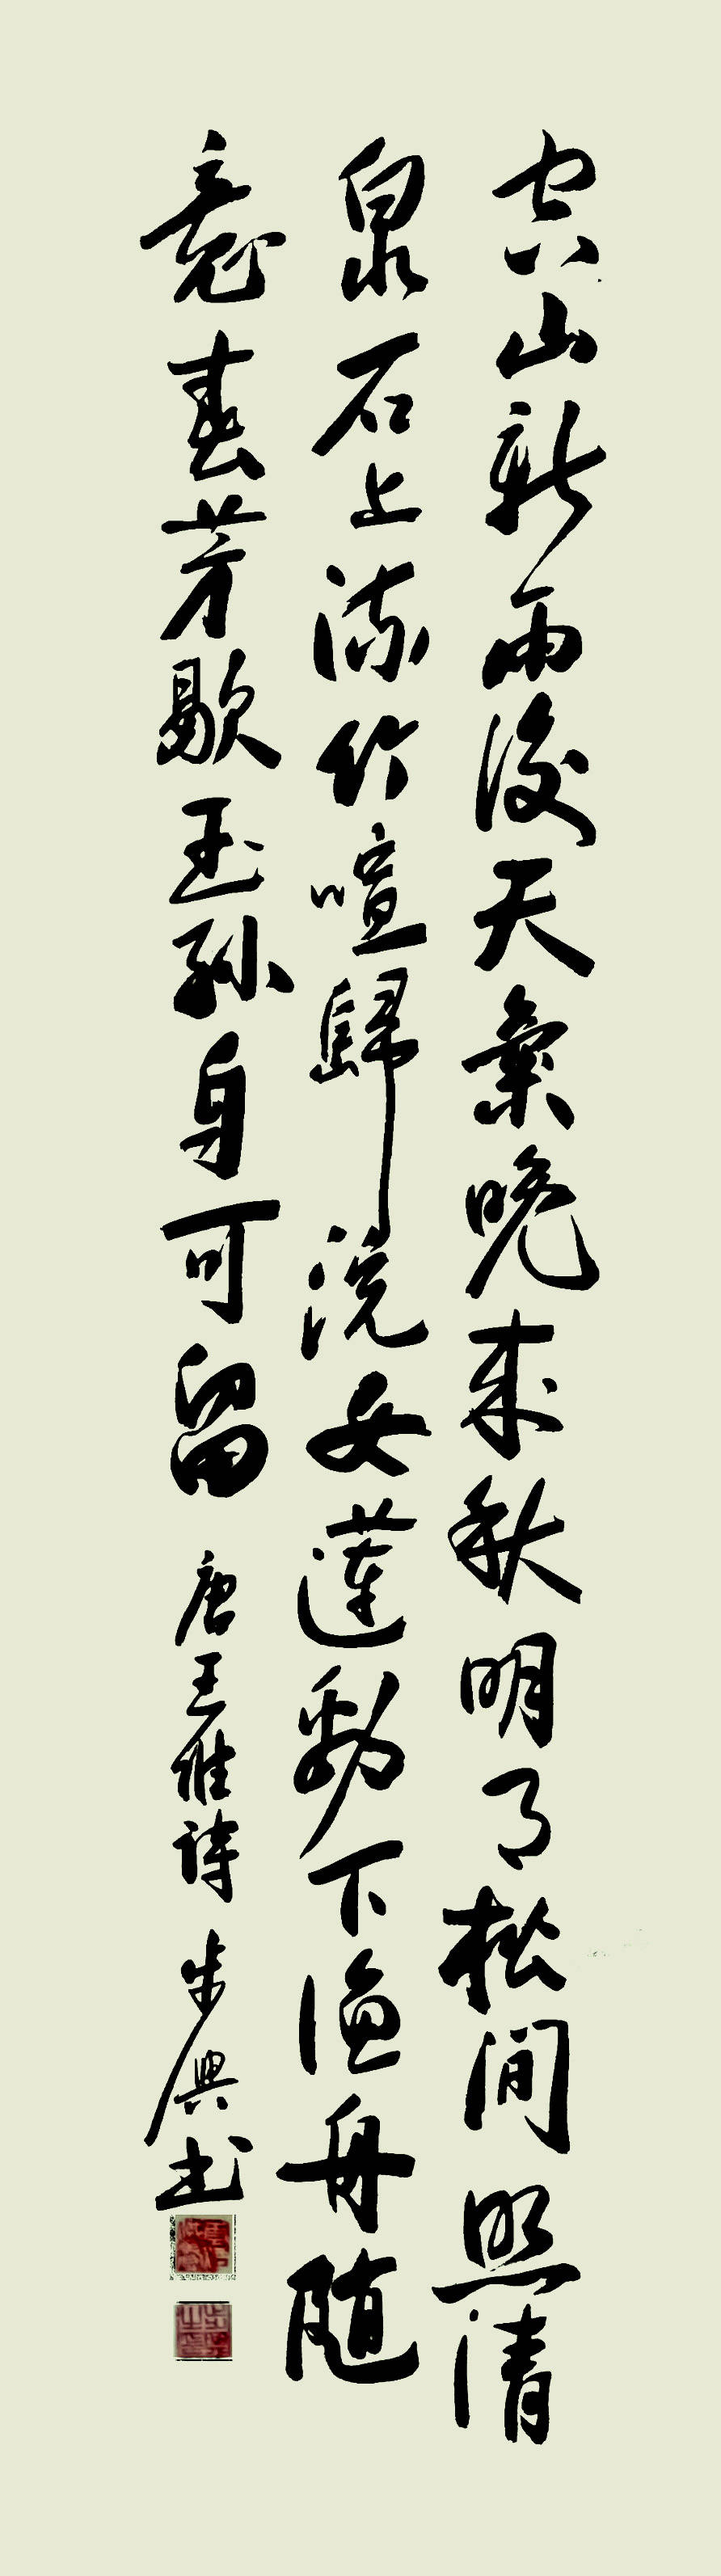 空山新雨後天氣晚來秋明月松間照清
泉石上流竹喧歸浣女蓮動下漁舟随
意春芳歇王孫自可留 唐王維詩 步興书